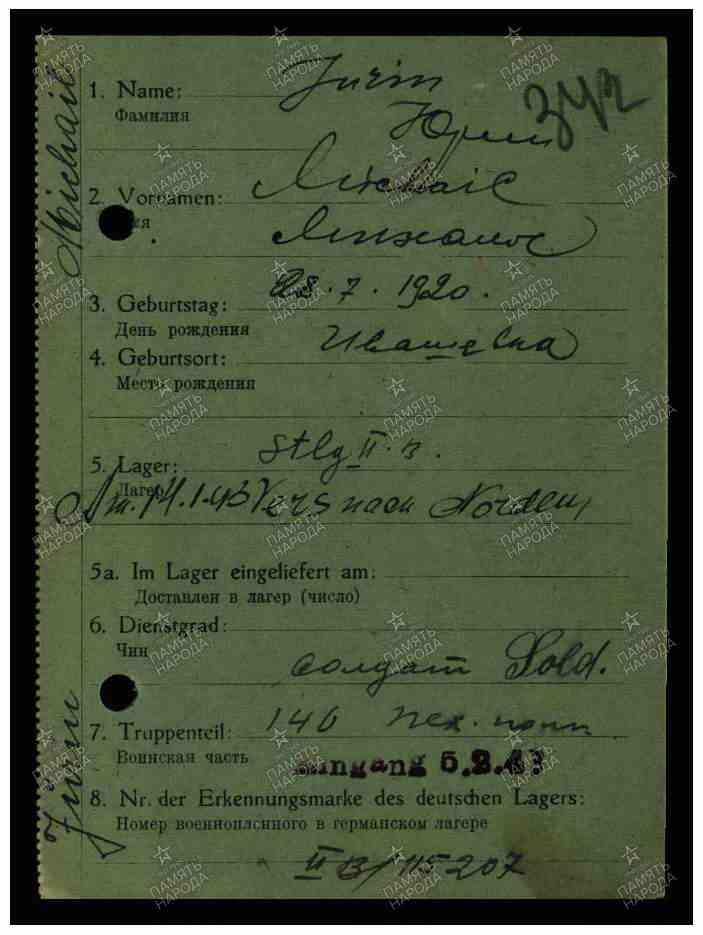 1. Name: Jurin
Фамилия Юрин
342
2. Vornamen: Michail
Михаил
3. Geburtstag: 28.7.1920.
День рождения
4. Geburtsort: Ивашевка
Место рождения
5. Lager: Stlg II. B.
Лагерь
Am. 14.1.43 Vers nach Norden
5a. Im Lager eingeliefert am:
Доставлен в лагерь (число)
6. Dienstgrad:
Чин
солдат Sold.
7. Truppenteil: 140 пех. полк
Воинская часть
Eingang 5.2.43
8. Nr. der Erkennungsmarke des deutschen Lagers:
Номер военнопленного в германском лагере
II B/115207
Michail
Jurin
ПАМЯТЬ НАРОДА